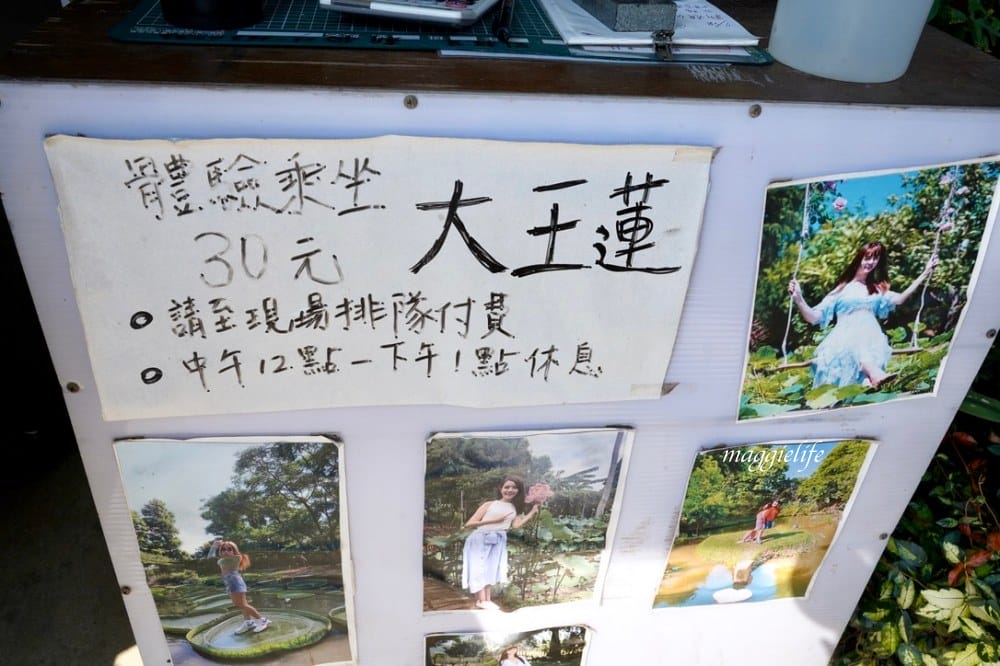 體驗乘坐
大王蓮
30元
請至現場排隊付費
中午12點－下午1點休息
maggielife